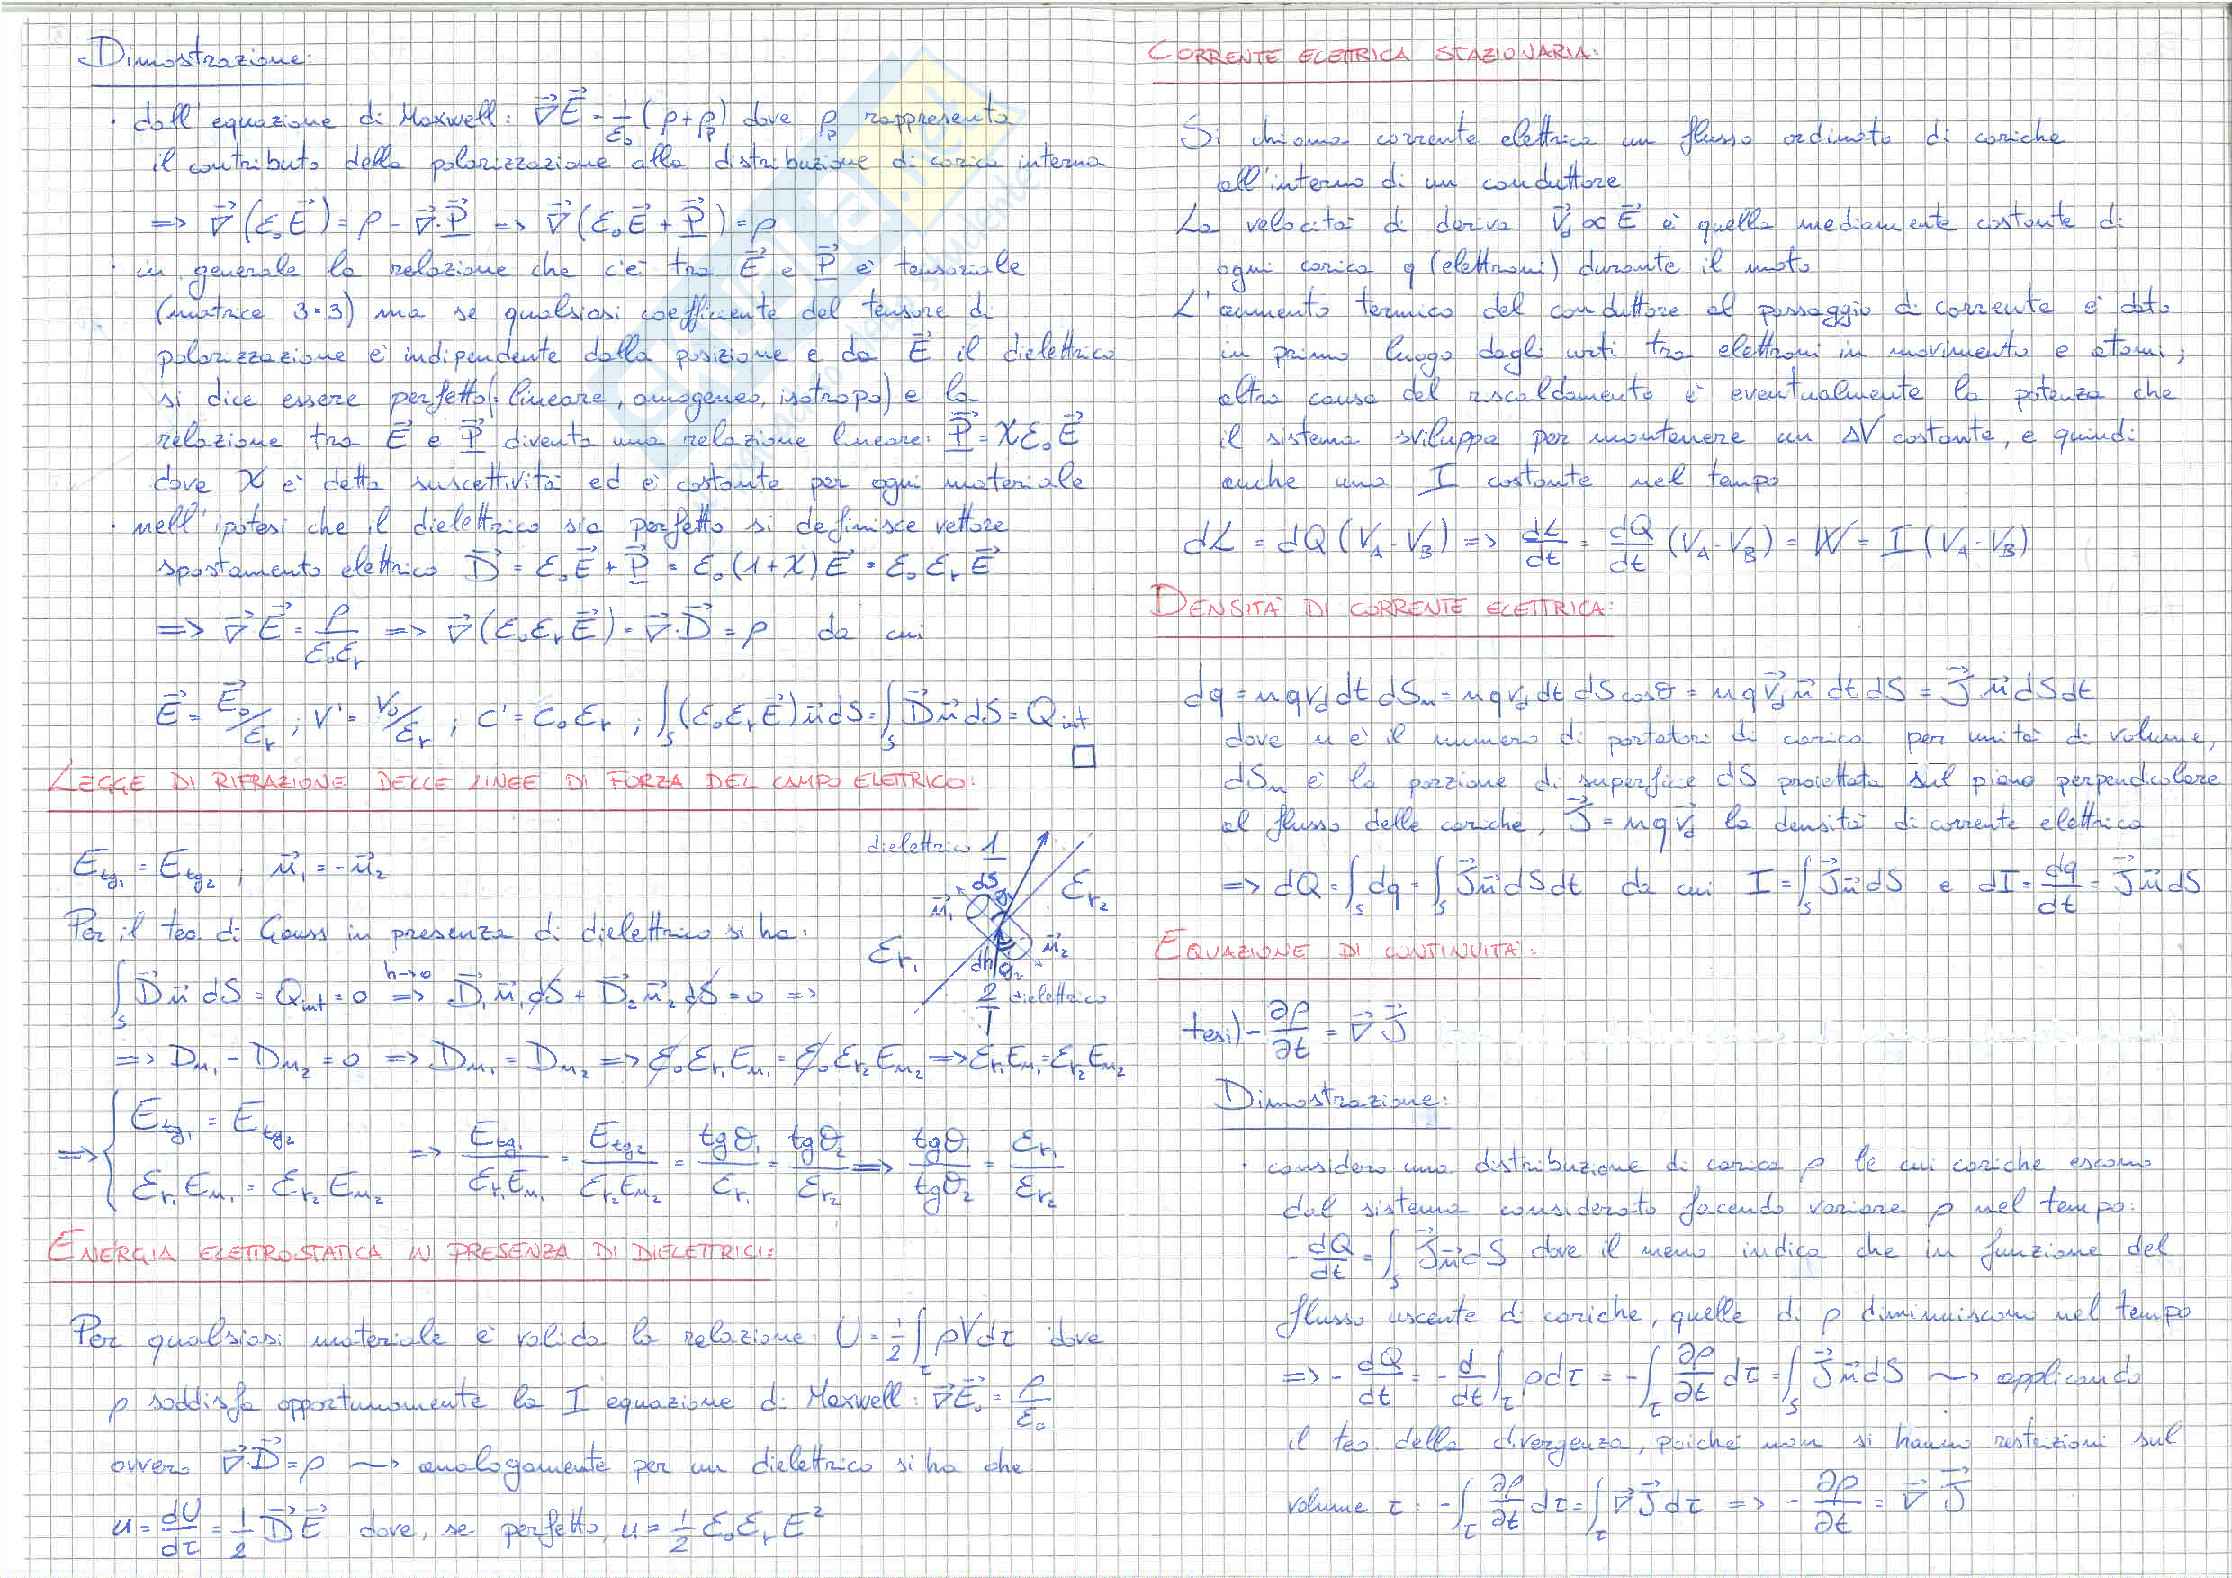 Dimostrazione:
· dall'equazione di Maxwell: ∇⃗E⃗ = 1/ε₀ (ρ+ρₚ) dove ρₚ rappresenta
il contributo della polarizzazione alla distribuzione di carica interna
=> ∇⃗(ε₀E⃗) = ρ - ∇⃗·P⃗ => ∇⃗(ε₀E⃗ + P⃗) = ρ
· in generale la relazione che c'è tra E⃗ e P⃗ è tensoriale
(matrice 3·3) ma se qualsiasi coefficiente del tensore di
polarizzazione è indipendente dalla posizione e da E⃗ il dielettrico
si dice essere perfetto (lineare, omogeneo, isotropo) e la
relazione tra E⃗ e P⃗ diventa una relazione lineare: P⃗ = χε₀E⃗
dove χ è detta suscettività ed è costante per ogni materiale
· nell'ipotesi che il dielettrico sia perfetto si definisce vettore
spostamento elettrico D⃗ = ε₀E⃗ + P⃗ = ε₀(1+χ)E⃗ = ε₀εᵣE⃗
=> ∇⃗E⃗ = ρ/ε₀εᵣ => ∇⃗(ε₀εᵣE⃗) = ∇⃗·D⃗ = ρ da cui
E⃗ = E⃗₀/εᵣ ; V' = V₀/εᵣ ; C' = C₀εᵣ ; ∫ₛ(ε₀εᵣE⃗)n⃗dS = ∫ₛD⃗n⃗dS = Q_int
□
LEGGE DI RIFRAZIONE DELLE LINEE DI FORZA DEL CAMPO ELETTRICO:
E_tg₁ = E_tg₂ ; n⃗₁ = -n⃗₂
Per il teo. di Gauss in presenza di dielettrico si ha:
∫ₛD⃗n⃗dS = Q_int = 0 h→0 => D⃗₁n⃗₁dS + D⃗₂n⃗₂dS = 0 =>
=> Dn₁ - Dn₂ = 0 => Dn₁ = Dn₂ => ε₀εᵣ₁En₁ = ε₀εᵣ₂En₂ => εᵣ₁En₁ = εᵣ₂En₂
=> { E_tg₁ = E_tg₂
εᵣ₁En₁ = εᵣ₂En₂ => E_tg₁/εᵣ₁En₁ = E_tg₂/εᵣ₂En₂ = tgθ₁/εᵣ₁ = tgθ₂/εᵣ₂ => tgθ₁/tgθ₂ = εᵣ₁/εᵣ₂
dielettrico 1
dS
θ₁
n⃗₁
εᵣ₂
εᵣ₁
n⃗₂
dh
θ₂
2 dielettrico
ENERGIA ELETTROSTATICA IN PRESENZA DI DIELETTRICI:
Per qualsiasi materiale è valida la relazione: U = 1/2 ∫τ ρVdτ dove
ρ soddisfa opportunamente la I equazione di Maxwell: ∇⃗E⃗₀ = ρ/ε₀
ovvero ∇⃗·D⃗ = ρ ~> analogamente per un dielettrico si ha che
u = dU/dτ = 1/2 D⃗E⃗ dove, se perfetto, u = 1/2 ε₀εᵣE²
CORRENTE ELETTRICA STAZIONARIA:
Si chiama corrente elettrica un flusso ordinato di cariche
all'interno di un conduttore
La velocità di deriva V⃗d ∝ E⃗ è quella mediamente costante di
ogni carica q (elettroni) durante il moto
L'aumento termico del conduttore al passaggio di corrente è dato
in primo luogo dagli urti tra elettroni in movimento e atomi;
altra causa del riscaldamento è eventualmente la potenza che
il sistema sviluppa per mantenere un ΔV costante, e quindi
anche una I costante nel tempo
dL = dQ(V_A - V_B) => dL/dt = dQ/dt (V_A - V_B) = W = I(V_A - V_B)
DENSITÀ DI CORRENTE ELETTRICA:
dq = nqv_d dt dSn = nqv_d dt dS cosθ = nqv⃗_d n⃗ dt dS = J⃗ n⃗ dS dt
dove n è il numero di portatori di carica per unità di volume,
dSn è la porzione di superfice dS proiettata sul piano perpendicolare
al flusso delle cariche, J⃗ = nqv⃗_d la densità di corrente elettrica
=> dQ = ∫ₛ dq = ∫ₛ J⃗n⃗dSdt da cui I = ∫ₛ J⃗n⃗dS e dI = dq/dt = J⃗n⃗dS
EQUAZIONE DI CONTINUITÀ:
tesi) -∂ρ/∂t = ∇⃗J⃗
Dimostrazione:
· considero una distribuzione di carica ρ le cui cariche escono
dal sistema considerato facendo variare ρ nel tempo:
-dQ/dt = ∫ₛ J⃗n⃗dS dove il meno indica che in funzione del
flusso uscente di cariche, quelle di ρ diminuiscono nel tempo
=> -dQ/dt = -d/dt ∫τ ρdτ = -∫τ ∂ρ/∂t dτ = ∫ₛ J⃗n⃗dS ~> applicando
il teo. della divergenza, poiché non si hanno restrizioni sul
volume τ: -∫τ ∂ρ/∂t dτ = ∫τ ∇⃗J⃗dτ => -∂ρ/∂t = ∇⃗J⃗